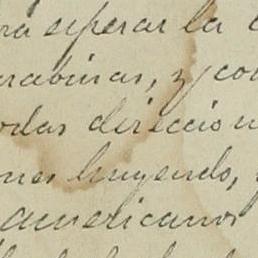 ra esperar la
rabinas, y co
odas direccion
nes huyendo, y
americanos